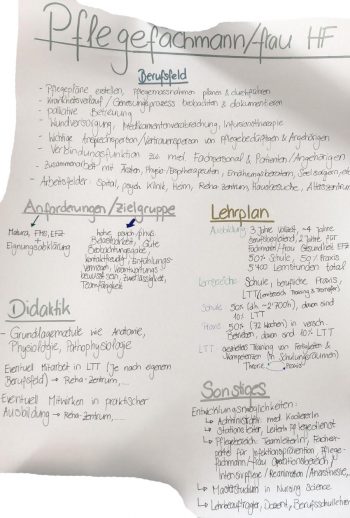 Pflegefachmann/frau HF
Berufsfeld
- Pflegepläne erstellen, Pflegemassnahmen planen & durchführen
- Krankheitsverlauf / Genesungsprozess beobachten & dokumentieren
- palliative Betreuung
- Wundversorgung, Medikamentenverabreichung, Infusionstherapie
- Wichtige Ansprechperson/Vertrauensperson von Pflegebedürftigen & Angehörigen
- Verbindungsfunktion zu med. Fachpersonal & Patienten/Angehörigen
- Zusammenarbeit mit Ärzten, Physio-/Ergotherapeuten, Ernährungsberatern, Seelsorgern, etc.
- Arbeitsfelder: Spital, psych. Klinik, Heim, Reha-zentrum, Hausbesuche, Alterszentrum
Anforderungen/Zielgruppe
Matura, FMS, EFZ
+
Eignungsabklärung
hohe psych./phys.
Belastbarkeit, Gute
Beobachtungsgabe,
kontaktfreudig, Einfühlungs-
vermögen, Verantwortungs-
bewusstsein, Zuverlässigkeit,
Teamfähigkeit
Lehrplan
Ausbildung: 3 Jahre Vollzeit, 4 Jahre
berufsbegleitend, 2 Jahre für
Fachmann/frau Gesundheit EFZ
50% Schule, 50% Praxis
5'400 Lernstunden total
Lernbereiche: Schule, berufliche Praxis,
LTT (Lernbereich Training & Transfer)
Schule: 50% (ca. 2'700h), davon sind
10% LTT
Praxis: 50% (72 Wochen) in versch.
Betrieben, davon sind 10% LTT
LTT: gezieltes Training von Fertigkeiten &
Kompetenzen (in Schulungsräumen)
Theorie Praxis
Didaktik
- Grundlagenmodule wie Anatomie,
Physiologie, Pathophysiologie
Eventuell Mitarbeit in LTT (Je nach eigenem
Berufsfeld) → Reha-Zentrum,...
Eventuell Mitwirken in praktischer
Ausbildung → Reha-Zentrum,...
Sonstiges
Entwicklungsmöglichkeiten:
↳ Stationsleiter, LeiterIn Pflegedienst
↳ Pflegebereich: TeamleiterIn,
für Infektionsprävention, Pflege-
fachmann/frau Operationsbereich/
Intensivpflege/Reanimation/Anästhesie,...
↳ Masterstudium in Nursing Science
↳ Lehrbeauftragter, Dozent, Berufsschullehrer